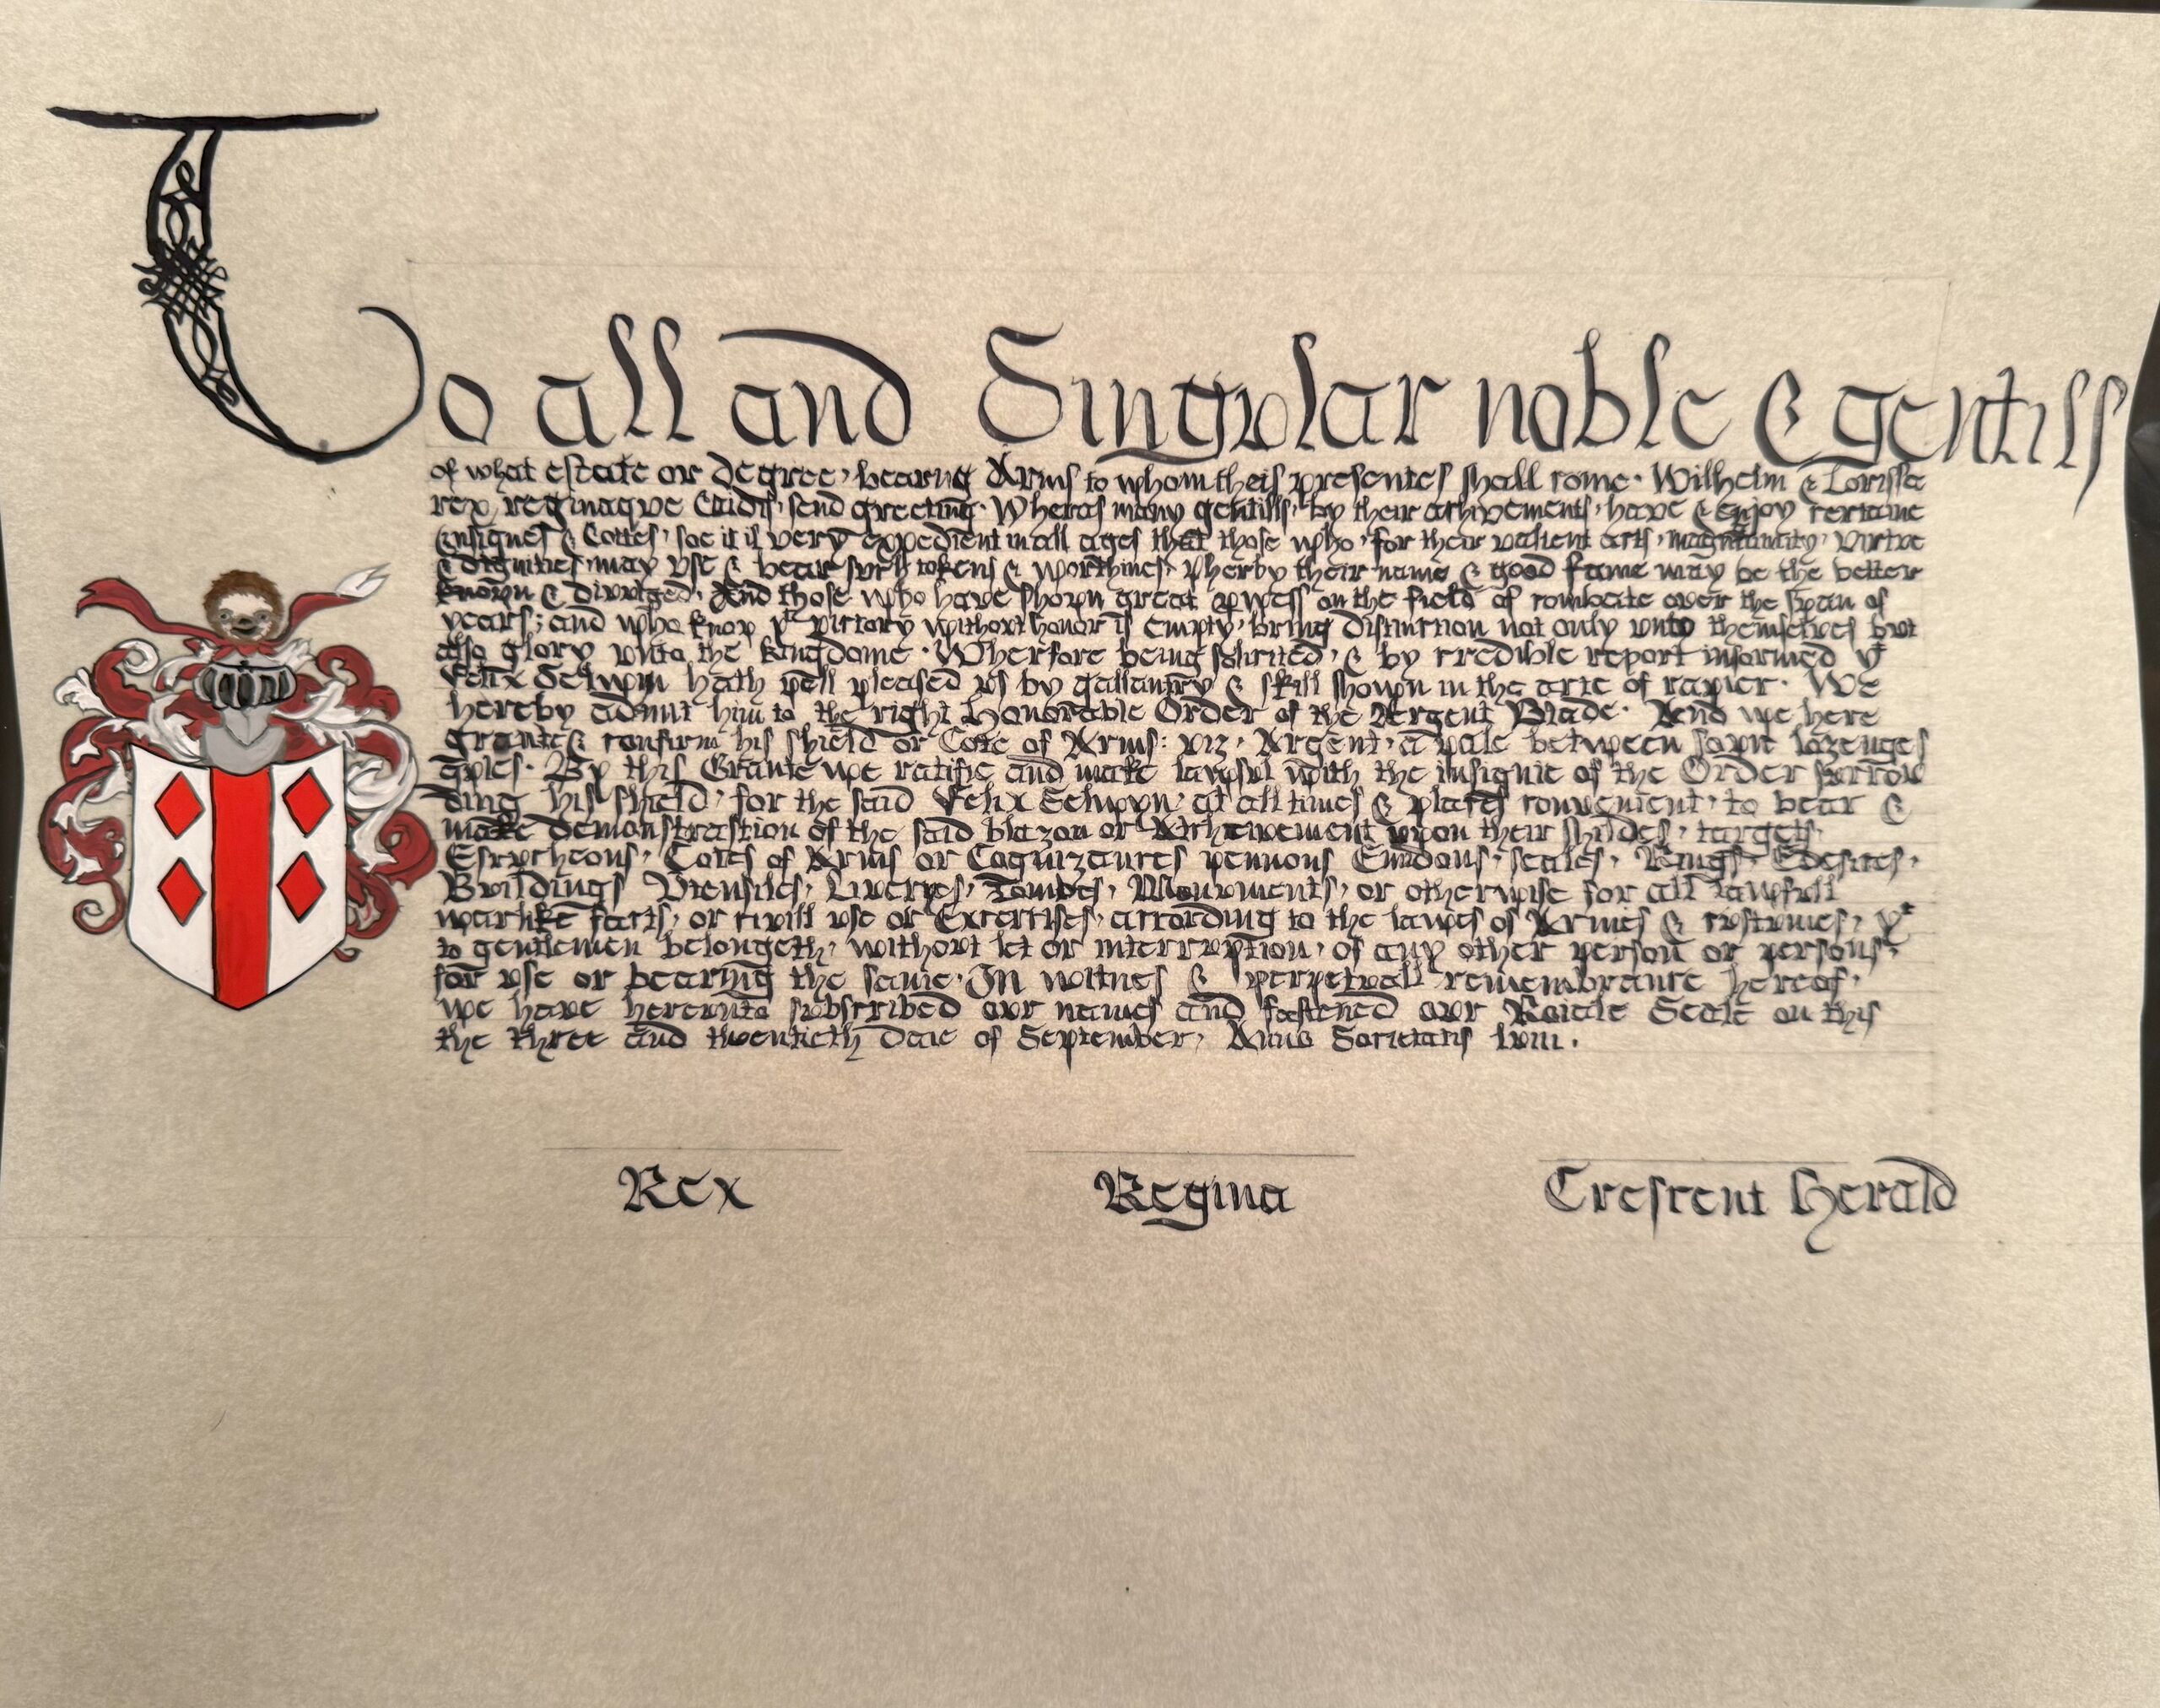 To all and Singvlar noble & gentills
of what estate or degree, bearing Arms to whom theis presentes shall come. Wilhelm & Lorissa
rex, reginaqve Caidis, send greeting. Wheras many gentills, by their achivements, have & enjoy certaine
ensignes & Cottes, soe it is very expedient in all ages that those who, for their valient acts, magnanimity, virtve
& dignities, may vse & bear svch tokens & worthines, wherby their name & good fame may be the better
known & divvlged. And those who have shown great prowess on the field of combate over the span of
years; and who know yt victory withovt honor is empty, bring distinction not only vnto themselves bvt
also glory vnto the kingdome. Wherfore being solicited, & by credible report informed yt
Felix Selwyn hath well pleased vs by gallantry & skill shown in the arte of rapier. We
hereby admit him to the right Honorable Order of the Argent Blade. And we here
grante & confirm his shield or Cote of Arms: viz, Argent, a pale between fovr lozenges
gvles. By this Grante we ratifie and make lawfvl with the insignie of the Order svrrov
ding his shield, for the said Felix Selwyn, at all times & places convenient, to bear &
make demonstrastion of the said blazon or Atchevement vpon their shildes, targets,
Escvcheons, Cotes of Arms or Cognizances pennons Gvidons, seales, Rings, Edefices,
Bvildings Vtensiles, Liveryes, Tombes, Monvments, or otherwise for all lawfvll
warlike facts, or civill vse or Exercises, according to the lawes of Armes & cvstomes, yt
to gentlemen belongeth, withovt let or interrvption, of any other person or persons,
for vse or bearing the same. In witnes & perpetvall remembrance hereof,
we have herevnto svbscribed ovr names and fastened ovr Roiale Seale on this
the three and twentieth Daie of September, Anno Societatis lviii.
Rex Regina Crescent Herald